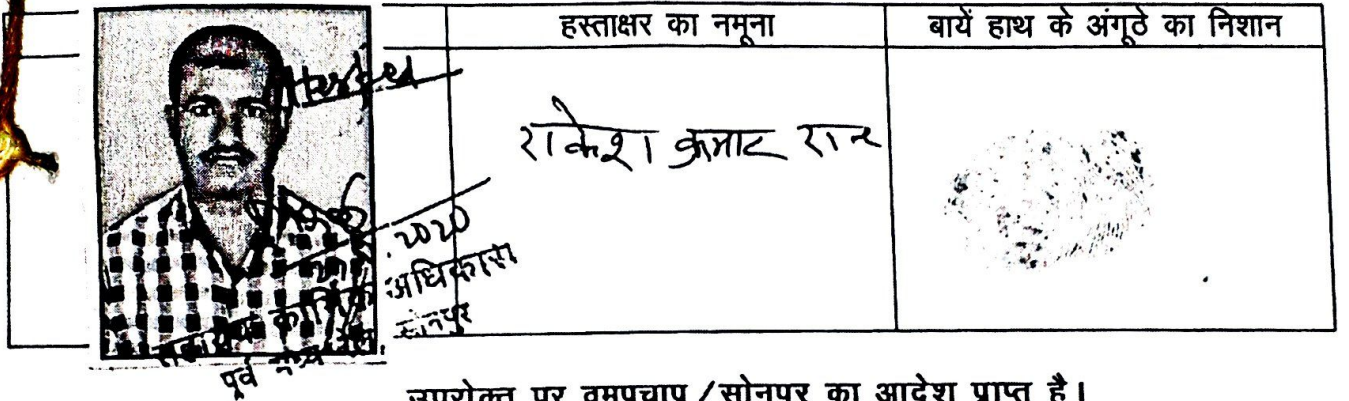 हस्ताक्षर का नमूना
बायें हाथ के अंगूठे का निशान
राकेश कुमार
2020
अधिकारी
सोनपुर
पूर्व मध्य रेल
उपरोक्त पर वमपचाप / सोनपुर का आदेश प्राप्त है।